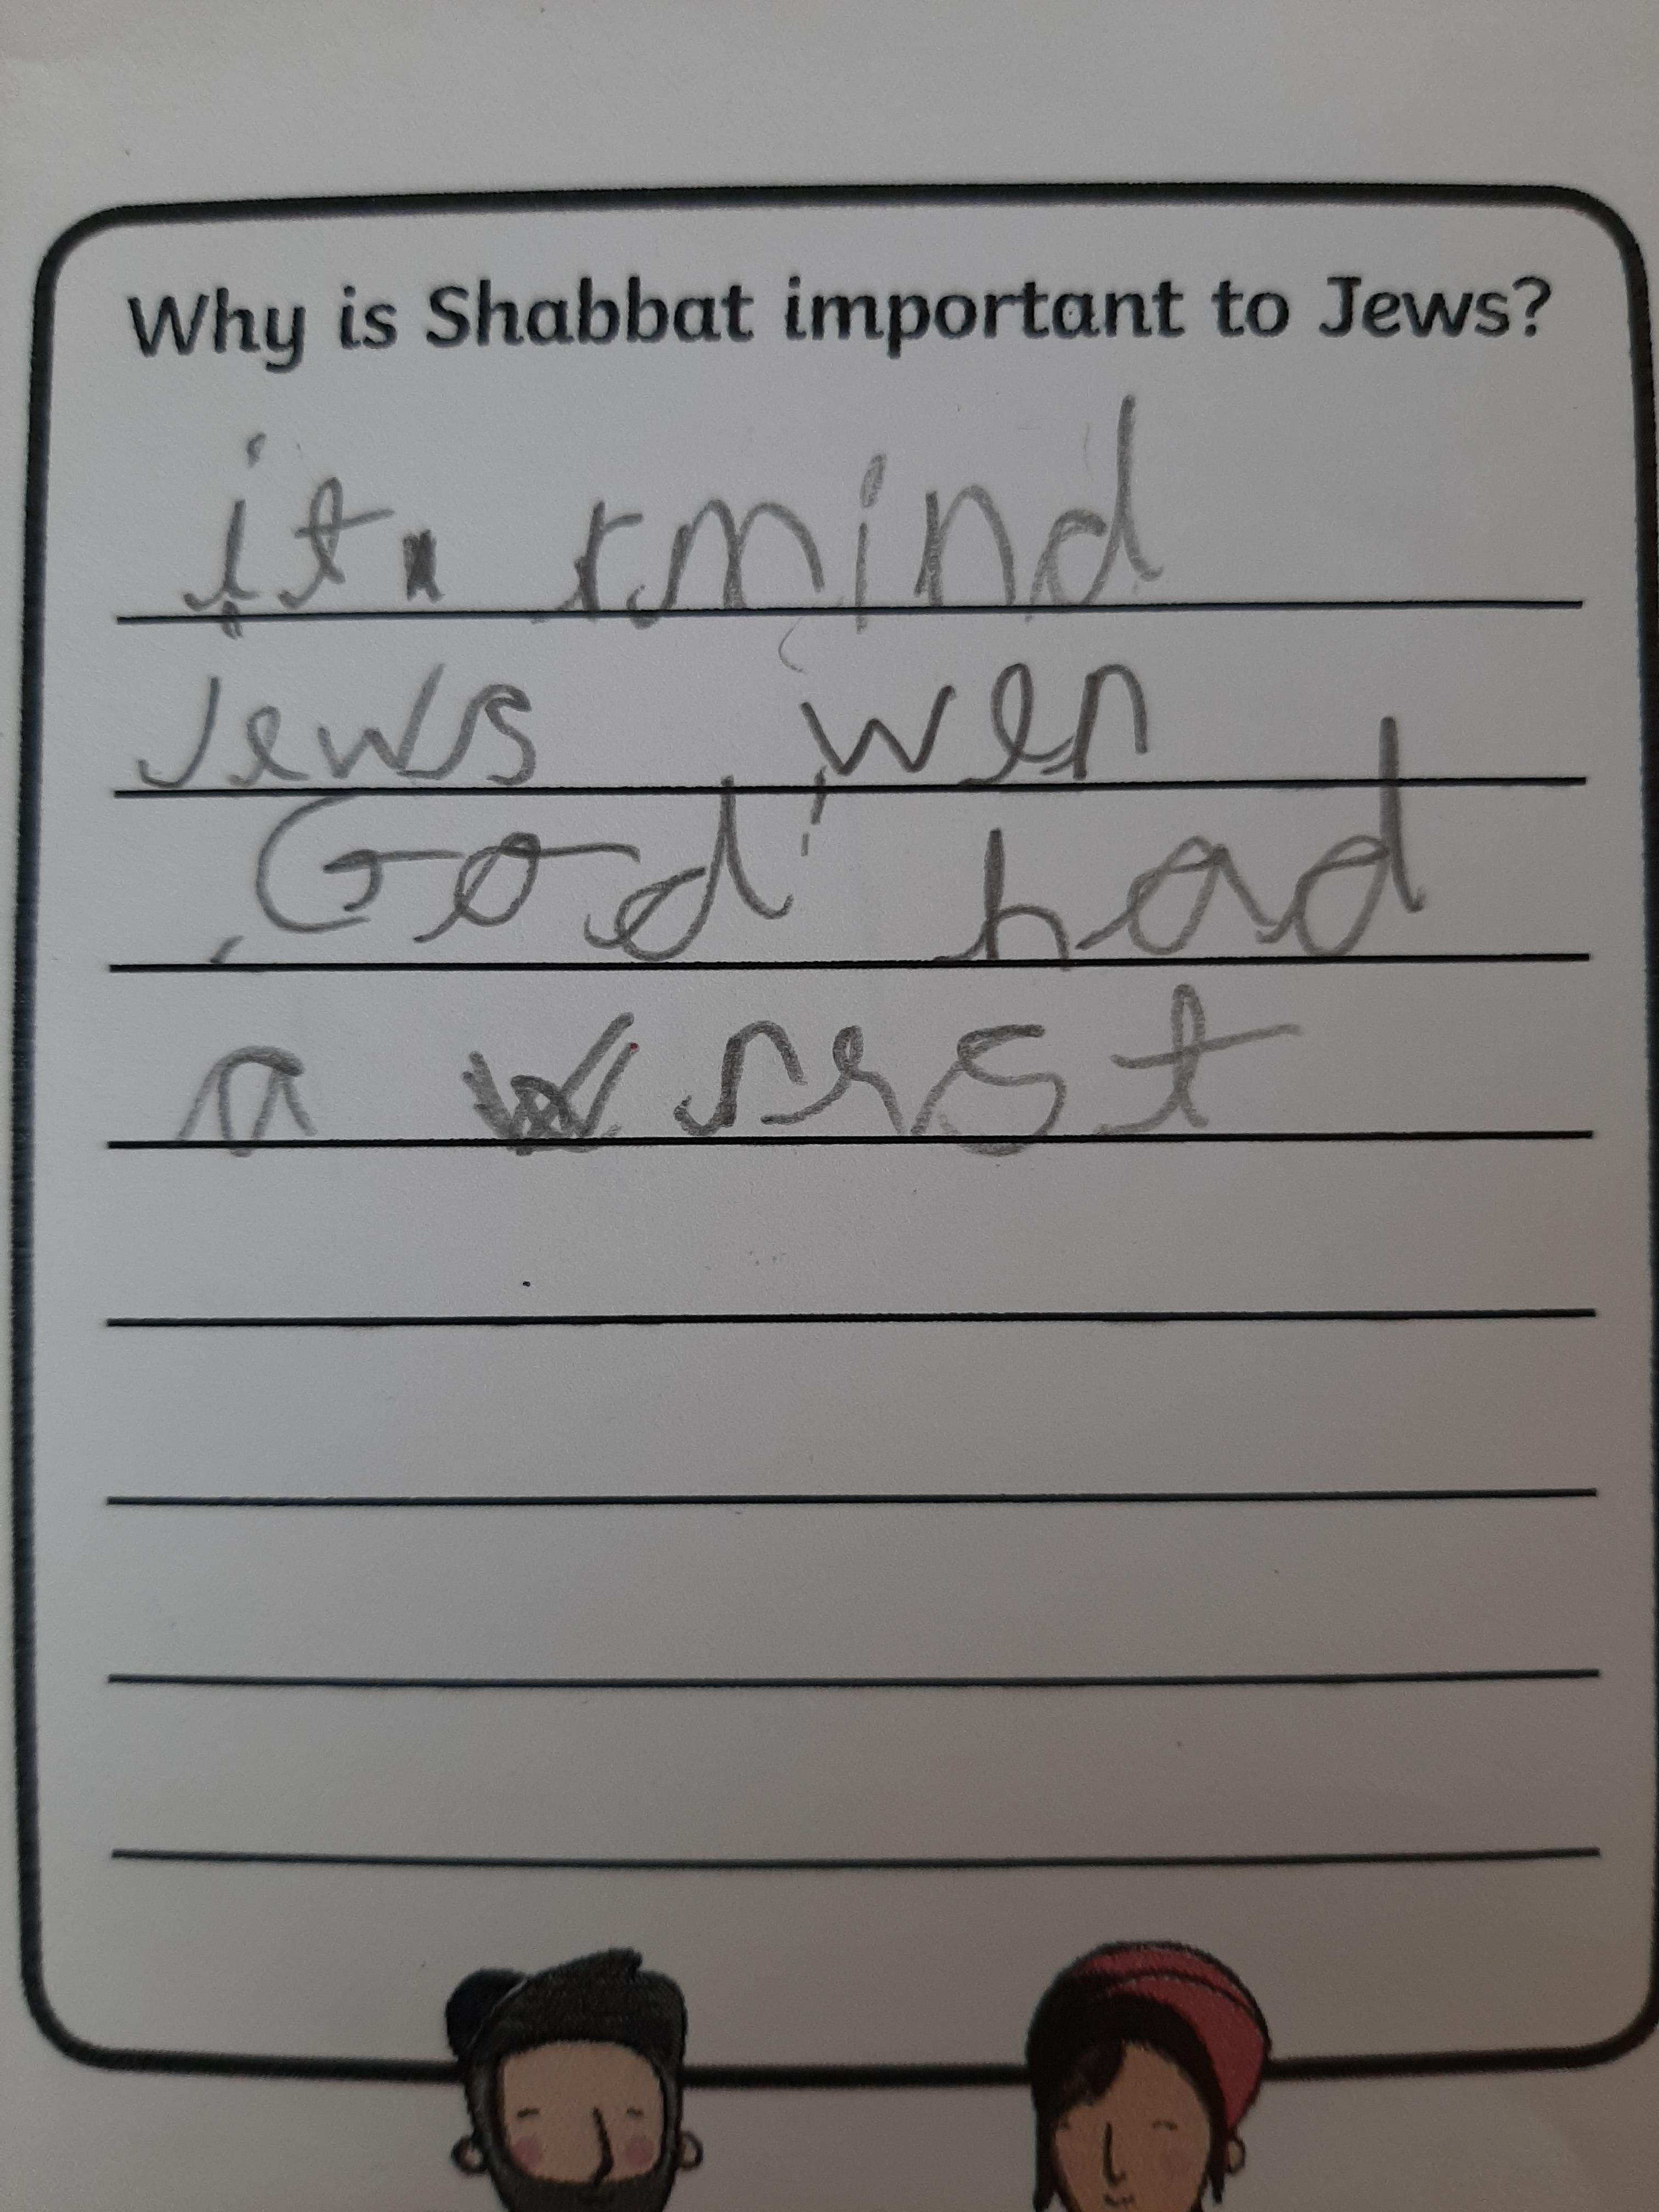 Why is Shabbat important to Jews?
it rmind
Jews wen
God had
a rest